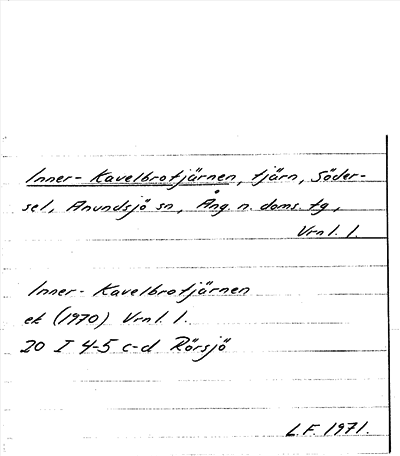 Inner- Kavelbrotjärnen, tjärn, Söder-
sel, Anundsjö sn, Ång. n. doms. tg,
Vrnl. l.
Inner- Kavelbrotjärnen
ek (1970) Vrnl. l.
20 I 4-5 c-d Rörsjö
L.F. 1971.